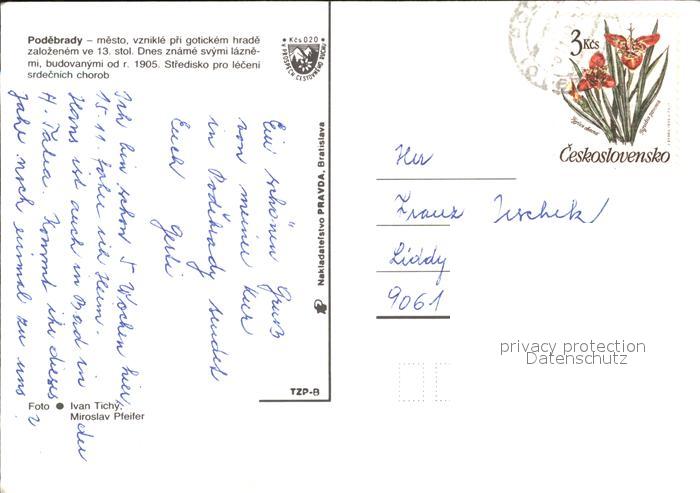 Poděbrady – město, vzniklé při gotickém hradě
založeném ve 13. stol. Dnes známé svými lázně-
mi, budovanými od r. 1905. Středisko pro léčení
srdečních chorob
Kčs 0,20
V PROSPĚCH CESTOVNÍHO RUCHU
Ein schönen Gruß
von meiner Kur
in Poděbrady sendet
Euch Gerti
Ich bin schon 5 Wochen hier,
15.11. fahre ich Heim.
Hans ist auch in Bad in der
H. Tatra. Kommt ihr dieses
Jahr noch einmal zu uns?
Foto ● Ivan Tichý,
Miroslav Pfeifer
TZP-B
Nakladateľstvo PRAVDA, Bratislava
3 Kčs
Tigridia pavonia
Československo
Her
Franz
Liddy
9061
privacy protection
Datenschutz